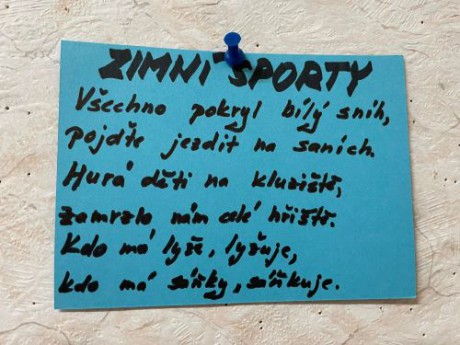 ZIMNÍ SPORTY
Všechno pokryl bílý sníh,
pojďte jezdit na saních.
Hurá děti na kluziště,
zamrzlo nám celé hřiště.
Kdo má lyže, lyžuje,
kdo má sáňky, sáňkuje.